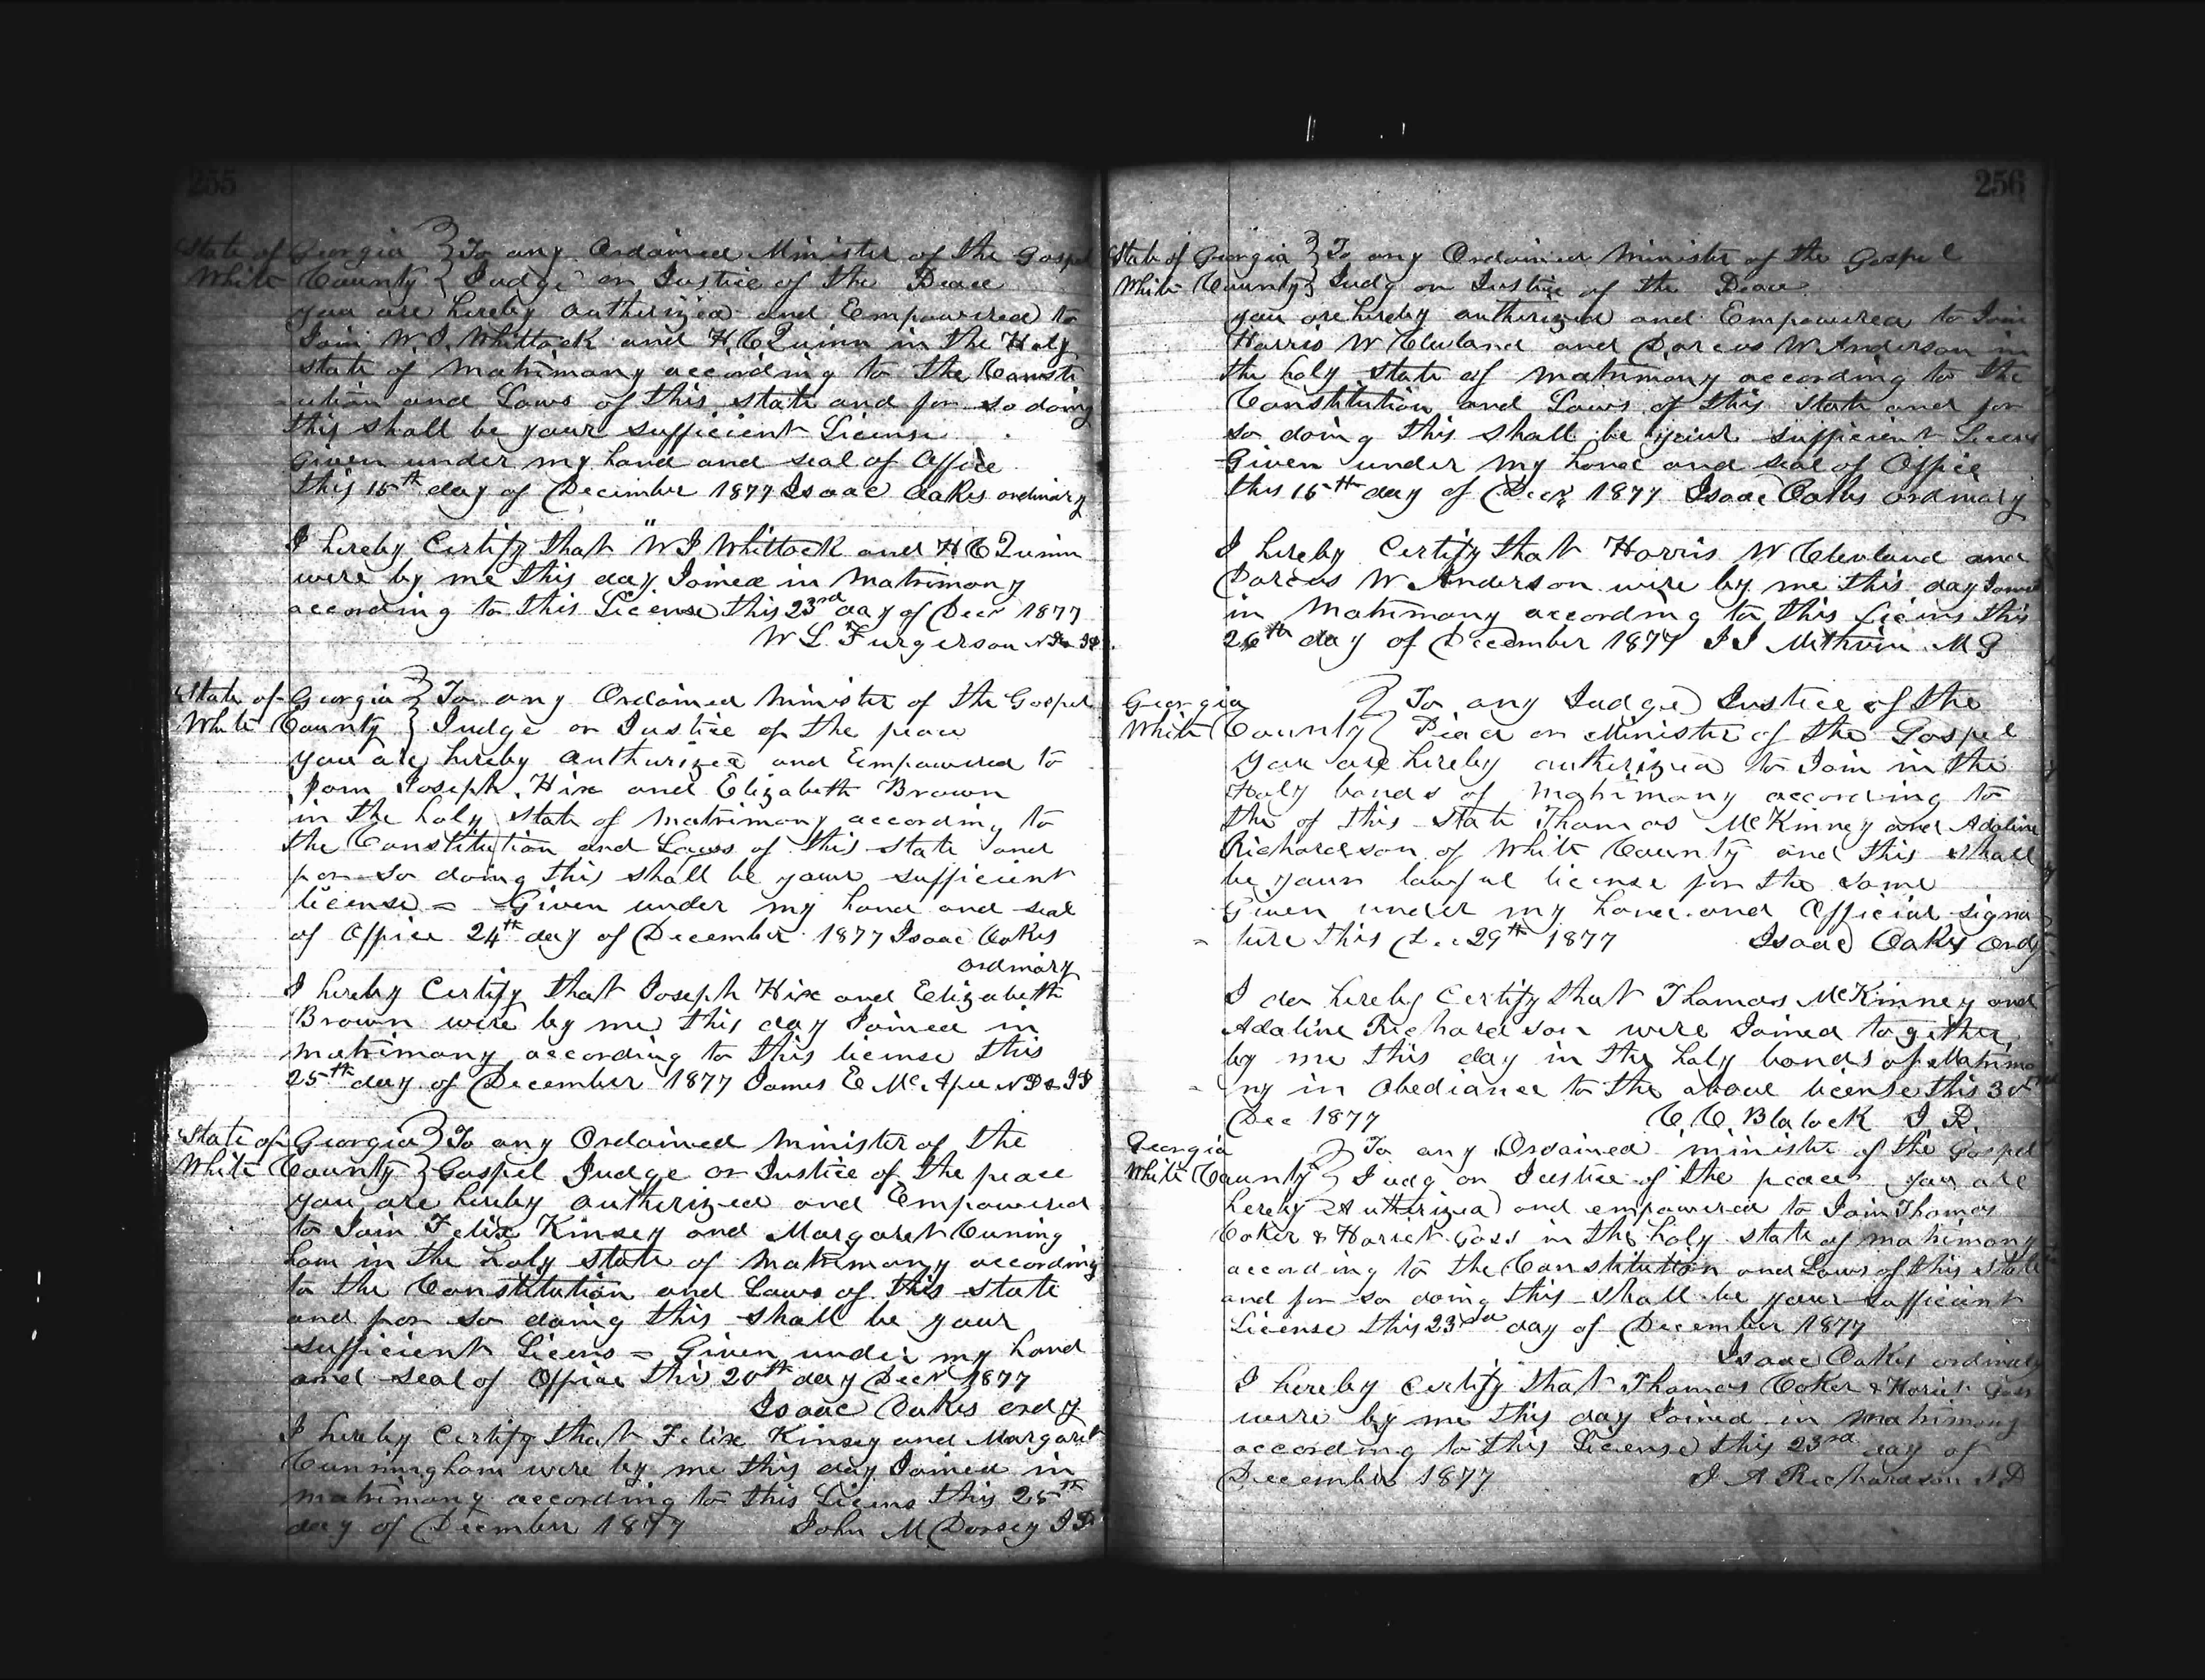 255
State of Georgia } To any Ordained Minister of the Gospel
White County } Judge or Justice of the Peace
you are hereby authorized and Empowered to
Join W. J. Whittock and H. C Quinn in the Holy
state of Matrimony according to the Consti
ution and Laws of this state and for so doing
this shall be your sufficient License
Given under my hand and seal of Office
this 15th day of December 1877 Isaac Oakes ordinary
I hereby Certify that W J Whittock and H C Quinn
were by me this day Joined in Matrimony
according to this License this 23rd day of Decr 1877
W L Furgerson
State of Georgia } To any Ordained Minister of the Gospel
White County } Judge or Justice of the peace
you are hereby authorized and Empowered to
Join Joseph Hix and Elizabeth Brown
in the holy state of Matrimony according to
the Constitution and Laws of this state and
for so doing this shall be your sufficient
license = Given under my hand and seal
of Office 24th day of December 1877 Isaac Oakes
ordinary
I hereby Certify that Joseph Hix and Elizabeth
Brown were by me this day Joined in
matrimony according to this license this
25th day of December 1877 James E McAfee N P & J P
State of Georgia } To any Ordained Minister of the
White County } Gospel Judge or Justice of the peace
you are hereby authorized and Empowered
to Join Felix Kinsey and Margaret Cuning
ham in the holy state of Matrimony according
to the Constitution and Laws of this state
and for so doing this shall be your
sufficient Licens = Given under my hand
and seal of Office this 20th day Decr 1877
Isaac Oakes ordy
I hereby Certify that Felix Kinsey and Margaret
Cunningham were by me this day Joined in
matrimony according to this Licens this 25th
day of December 1877 John M Dorsey J P
256
State of Georgia } To any Ordained Minister of the Gospel
White County } Judg or Justice of the Peace
you are hereby authorized and Empowered to Join
Harris W Cleveland and Darcus W Anderson in
the holy state of Matrimony according to the
Constitution and Laws of this state and for
so doing this shall be your sufficient Licens
Given under my hand and seal of Office
this 15th day of Decr 1877 Isaac Oakes ordinary
I hereby Certify that Harris W Clevland and
Darcus W Anderson were by me this day Joined
in Matrimony according to this Licens this
26th day of December 1877 J J Methvin M G
Georgia } To any Judge Justice of the
White County } Peace or Minister of the Gospel
You are hereby authorized to Join in the
Holy bands of Matrimony according to
the of this State Thomas McKinney and Adaline
Richardson of White County and this shall
be your lawful license for the same
Given under my hand and Official signa
= ture this Dec 29th 1877 Isaac Oakes Ordy
I do hereby Certify that Thomas McKinney and
Adaline Richardson were Joined together
by me this day in the holy bonds of Matrimo
= ny in Obediance to the above license this 30th
Dec 1877 C. C. Blalock J. P.
Georgia } To any Ordained minister of the Gospel
White County } Judg or Justice of the peace you are
hereby Authorized and empowered to Join Thomas
Coker & Hariet Goss in the holy state of matrimony
according to the Constitution and Laws of this state
and for so doing this shall be your sufficient
License this 23rd day of December 1877
Isaac Oakes ordinary
I hereby certify that Thomas Coker & Hariet Goss
were by me this day Joined in matrimony
according to this License this 23rd day of
December 1877 J A Richardson J. P